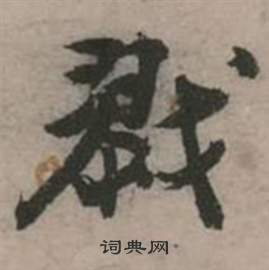 戮
词典网